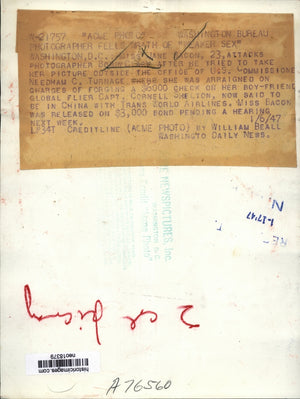 W-21757 "ACME PHOTO" WASHINGTON BUREAU,
PHOTOGRAPHER FEELS WRATH OF "WEAKER SEX"
WASHINGTON, D.C. BACON, 23, ATTACKS
PHOTOGRAPHER AFTER HE TRIED TO TAKE
HER PICTURE OUTSIDE THE OFFICE OF U.S. COMMISSIONER
NEEDHAM C. TURNAGE WHERE SHE WAS ARRAIGNED ON
CHARGES OF FORGING A CHECK ON HER BOY-FRIEND
GLOBAL FLIER CAPT. CORNELL SHELTON, NOW SAID TO
BE IN CHINA WITH TRANS WORLD AIRLINES. MISS BACON
WAS RELEASED ON $3,000 BOND PENDING A HEARING
NEXT WEEK. 1/6/47
CREDITLINE (ACME PHOTO) BY WILLIAM BEALL
WASHINGTO DAILY NEWS.
N
1-17-47
REF
NEWSPICTURES, Inc.
Credit "Acme Photo"
2 col
historicimages.com
neo18379
A76560